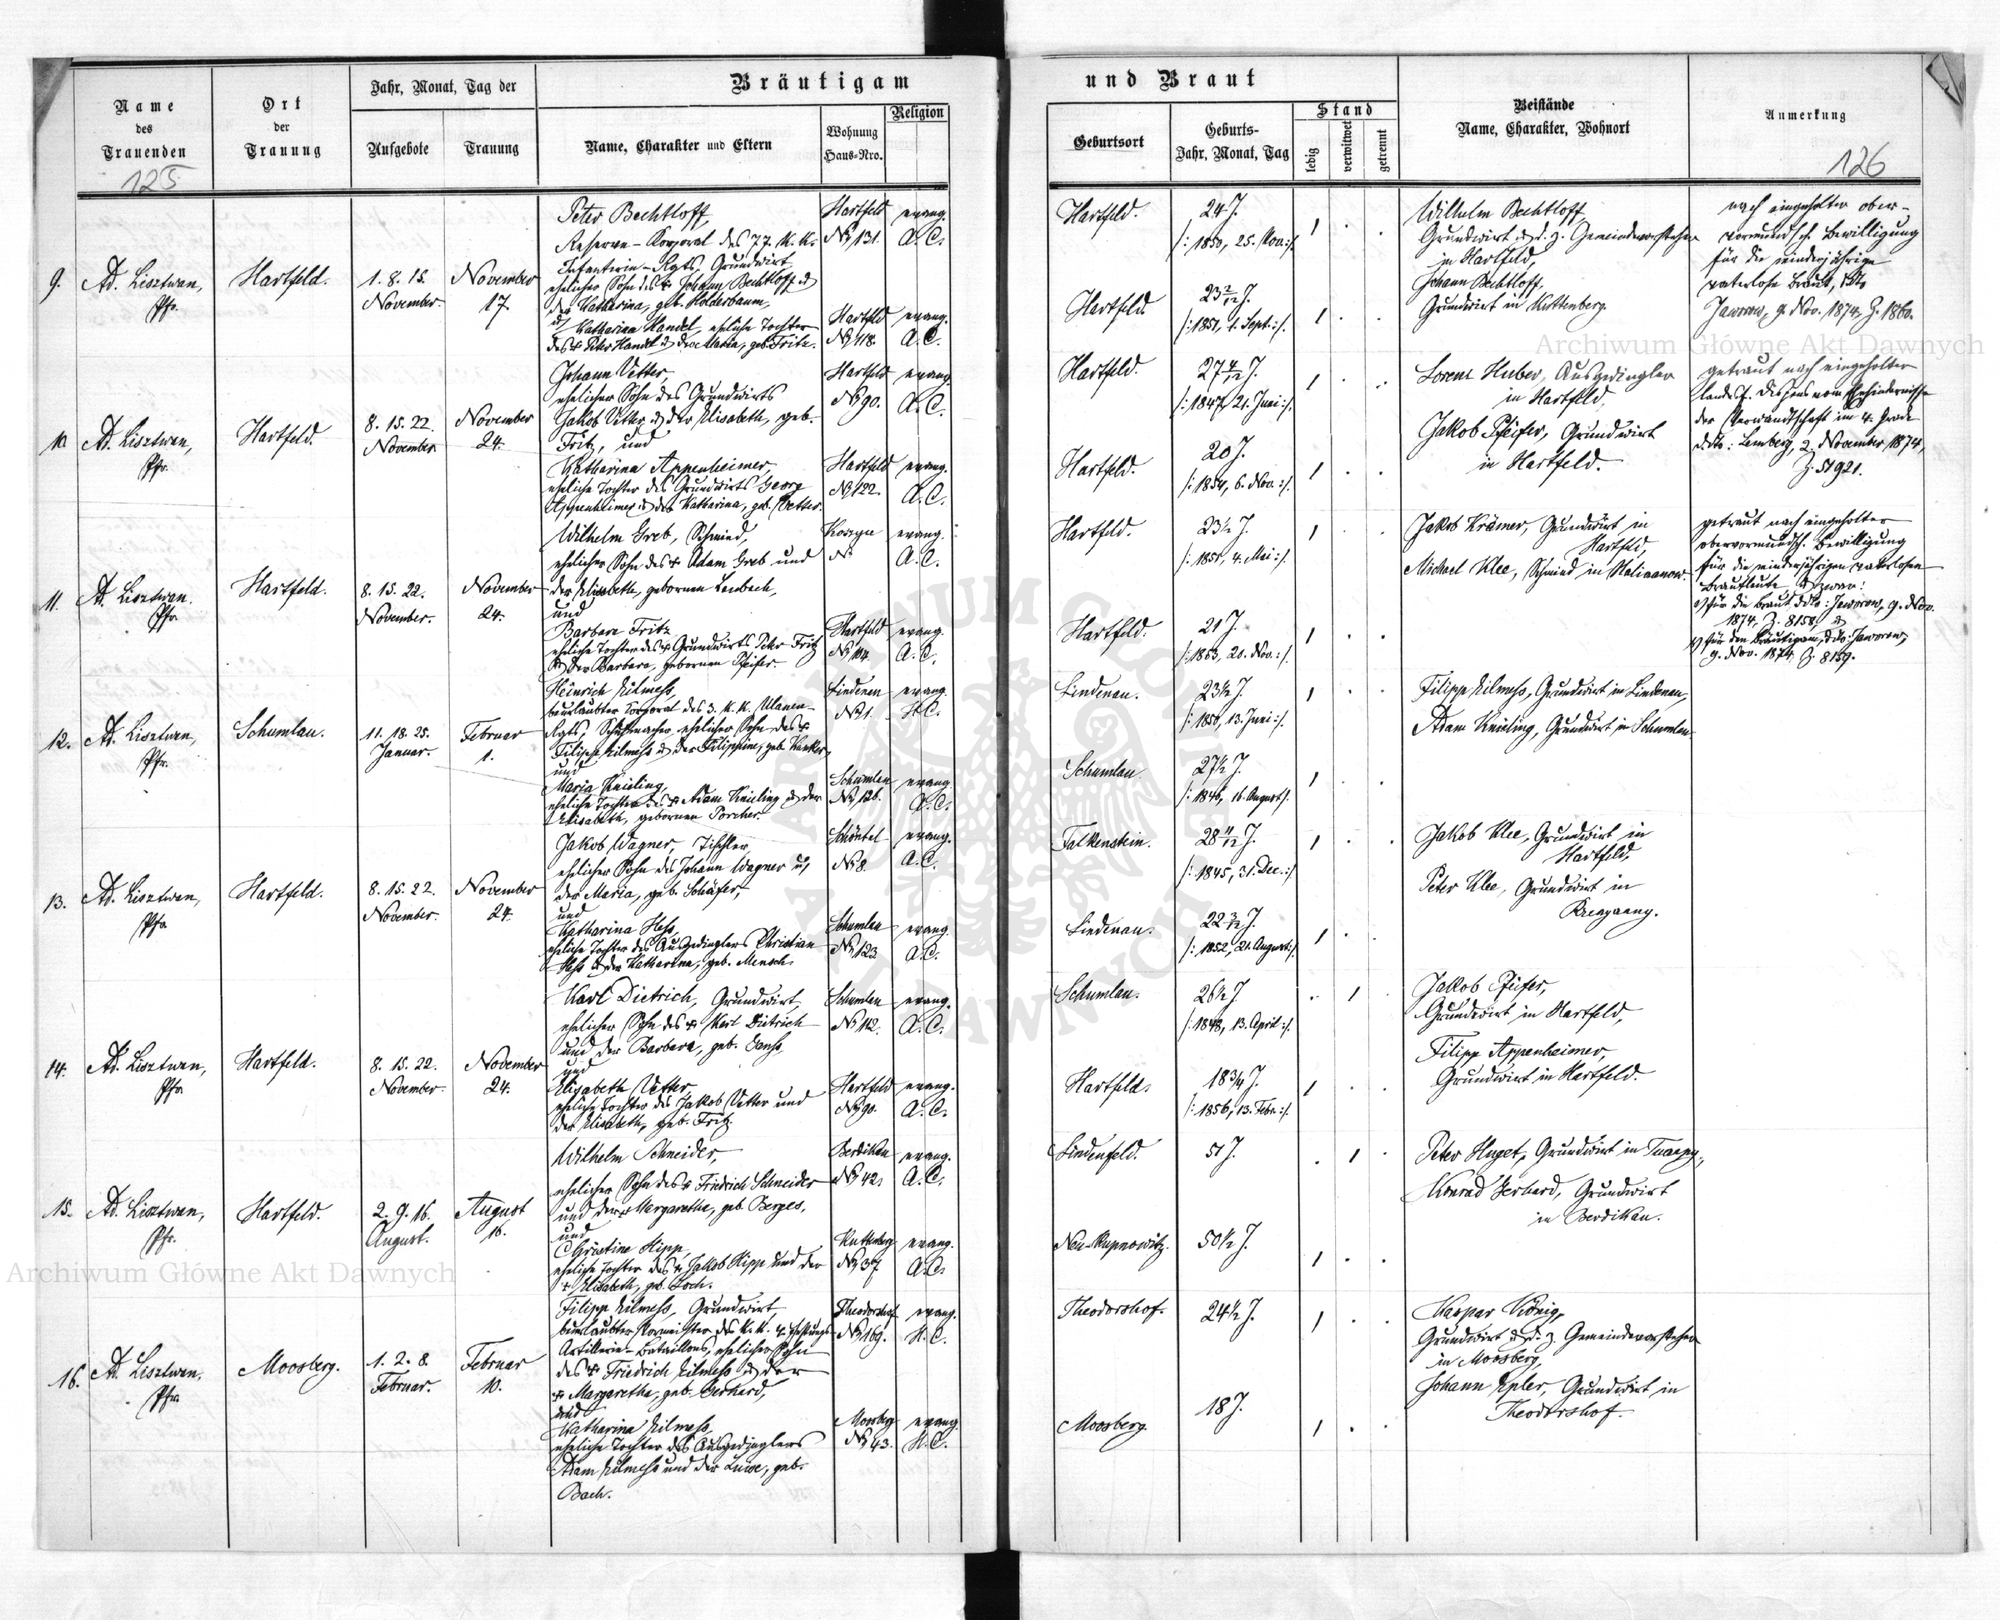 Bräutigam und Braut
Name des Trauenden
Ort der Trauung
Jahr, Monat, Tag der
Aufgebote
Trauung
Name, Charakter und Eltern
Wohnung Haus-Nro.
Religion
Geburtsort
Geburts- Jahr, Monat, Tag
Stand
ledig
verwitwet
getrennt
Beistände
Name, Charakter, Wohnort
Anmerkung
125
126
9. Ad. Lisztwan, Pfr.
Hartfeld.
1. 8. 15. November.
November 17.
Peter Bechtloff,
Reserve-Korporal des 77. K. K.
Infanterie-Rgts, Grundwirt,
ehelicher Sohn des + Johann Bechtloff &
der Katharina, geb. Holderbaum,
Hartfeld No 131.
evang. A. C.
Hartfeld.
24 J.
/: 1850, 25. Nov. :/.
Katharina Handel, eheliche Tochter
des + Peter Handel & der Maria, geb. Fritz.
Hartfeld No 118.
evang. A. C.
Hartfeld.
23 2/12 J.
/: 1851, 1. Sept. :/.
Wilhelm Bechtloff,
Grundwirt & d. z. Gemeindevorsteher
in Hartfeld,
Johann Bechtloff,
Grundwirt in Kuttenberg.
nach eingeholter ober-
vormundsch. Bewilligung
für die minderjährige
vaterlose Braut, ddto
Jaworow, 9. Nov. 1874, Z. 1860.
10. Ad. Lisztwan, Pfr.
Hartfeld.
8. 15. 22. November
November 24.
Johann Vetter,
ehelicher Sohn des Grundwirts
Jakob Vetter & der Elisabeth, geb.
Fritz, und
Hartfeld No 90.
evang. A. C.
Hartfeld.
/: 1847, 21. Juni :/.
Katharina Appenheimer,
eheliche Tochter des Grundwirts Georg
Appenheimer & der Katharina, geb. Vetter.
Hartfeld No 122.
evang. A. C.
Hartfeld.
20 J.
/: 1854, 6. Nov. :/.
Lorenz Huber, Ausgedingler
in Hartfeld,
Jakob Pfeifer, Grundwirt
in Hartfeld.
getraut nach eingeholter
der Verwandtschaft im 4. Grade
ddto: Lemberg, 2. November 1874,
Z. 51921.
11. Ad. Lisztwan. Pfr.
Hartfeld.
8. 15. 22. November.
November 24.
Wilhelm Greb, Schmied,
ehelicher Sohn des + Adam Greb und
der Elisabeth, gebornen Lembach,
und
No
evang. A. C.
Hartfeld.
23 1/2 J.
/: 1851, 4. Mai :/.
Barbara Fritz
eheliche Tochter des + Grundwirts Peter Fritz
& der Barbara, gebornen Pfeifer.
Hartfeld No 114.
evang. A. C.
Hartfeld.
21 J.
/: 1853, 21. Nov. :/.
Jakob Krämer, Grundwirt in
Hartfeld,
Michael Klee, Schmied in
getraut nach eingeholter
obervormundsch. Bewilligung
für die minderjährigen vaterlosen
Brautleute & zwar:
für die Braut ddto: Jaworow, 9. Nov.
1874, Z. 8158 &
für den Bräutigam, ddo: Jaworow,
9. Nov. 1874 Z. 8159.
12. Ad. Lisztwan, Pfr.
Schumlau.
11. 18. 25. Januar.
Februar 1.
Heinrich Kilmess,
beurlaubter Korporal des 3. K. K. Ulanen-
Rgts, Schuhmacher, ehelicher Sohn des +
Filipp Kilmess & der Filippine, geb.
und
Lindenau No 1.
evang. H. C.
Lindenau.
23 1/2 J.
/: 1850, 13. Juni :/.
Maria Knieling,
eheliche Tochter des + Adam Knieling & der
Elisabeth, gebornen Porcher.
Schumlau No 126.
evang. A. C.
Schumlau.
27 1/2 J.
/: 1846, 16. August /.
Filipp Kilmess, Grundwirt in Lindenau,
Adam Knieling, Grundwirt in Schumlau.
13. Ad. Lisztwan, Pfr.
Hartfeld.
8. 15. 22. November.
November 24.
Jakob Wagner, Tischler,
ehelicher Sohn des Johann Wagner u.
der Maria, geb. Schäfer,
und
Schöntal No 8.
evang. A. C.
Falkenstein.
28 11/12 J.
/: 1845, 31. Dec. :/
Katharina Hess,
eheliche Tochter des Ausgedinglers Christian
Hess & der Katharina, geb. Mensch.
Schumlau No 123
evang. A. C.
Lindenau.
22 3/12 J.
/: 1852, 21. August :/.
Jakob Klee, Grundwirt in
Hartfeld,
Peter Klee, Grundwirt in
14. Ad. Lisztwan, Pfr.
Hartfeld.
8. 15. 22. November.
November 24.
Karl Dietrich, Grundwirt,
ehelicher Sohn des + Karl Dietrich
und der Barbara, geb.
und
Schumlau No 112.
evang. A. C.
Schumlau.
26 1/2 J.
/: 1848, 13. April :/.
Elisabeth Vetter,
eheliche Tochter des Jakob Vetter und
der Elisabeth, geb. Fritz.
Hartfeld No 90.
evang. A. C.
Hartfeld.
18 3/4 J.
/: 1856, 13. Febr. :/.
Jakob Pfeifer,
Grundwirt in Hartfeld,
Filipp Appenheimer,
Grundwirt in Hartfeld.
15. Ad. Lisztwan, Pfr.
Hartfeld.
2. 9. 16. August.
August 16.
Wilhelm Schneider,
ehelicher Sohn des + Friedrich Schneider
und der + Margaretha, geb. Berges,
und
Berdikau No 42.
evang. A. C.
Lindenfeld.
51 J.
Christine Hipp,
eheliche Tochter des + Jakob Hipp und der
+ Elisabeth, geb. Loch.
Kuttenberg No 37
evang. A. C.
Neu-Kupnowitz.
50 1/2 J.
Peter Huget, Grundwirt in
Konrad Gerhard, Grundwirt
in Berdikau.
16. Ad. Lisztwan. Pfr.
Moosberg.
1. 2. 8. Februar.
Februar 10.
Filipp Kilmess, Grundwirt,
Artillerie-Bataillons, ehelicher Sohn
des + Friedrich Kilmess & der
+ Margaretha, geb. Gerhard,
und
Theodorshof No 169.
evang. H. C.
Theodorshof.
24 1/2 J.
Katharina Kilmess,
eheliche Tochter des Ausgedinglers
Adam Kilmess und der Luise, geb.
Bach.
Moosberg No 43.
evang. H. C.
Moosberg.
18 J.
Kaspar König,
Grundwirt & d. z. Gemeindevorsteher
in Moosberg,
Johann Epler, Grundwirt in
Theodorshof.
Archiwum Główne Akt Dawnych
Archiwum Główne Akt Dawnych
ARCHIWUM GŁÓWNE AKT DAWNYCH